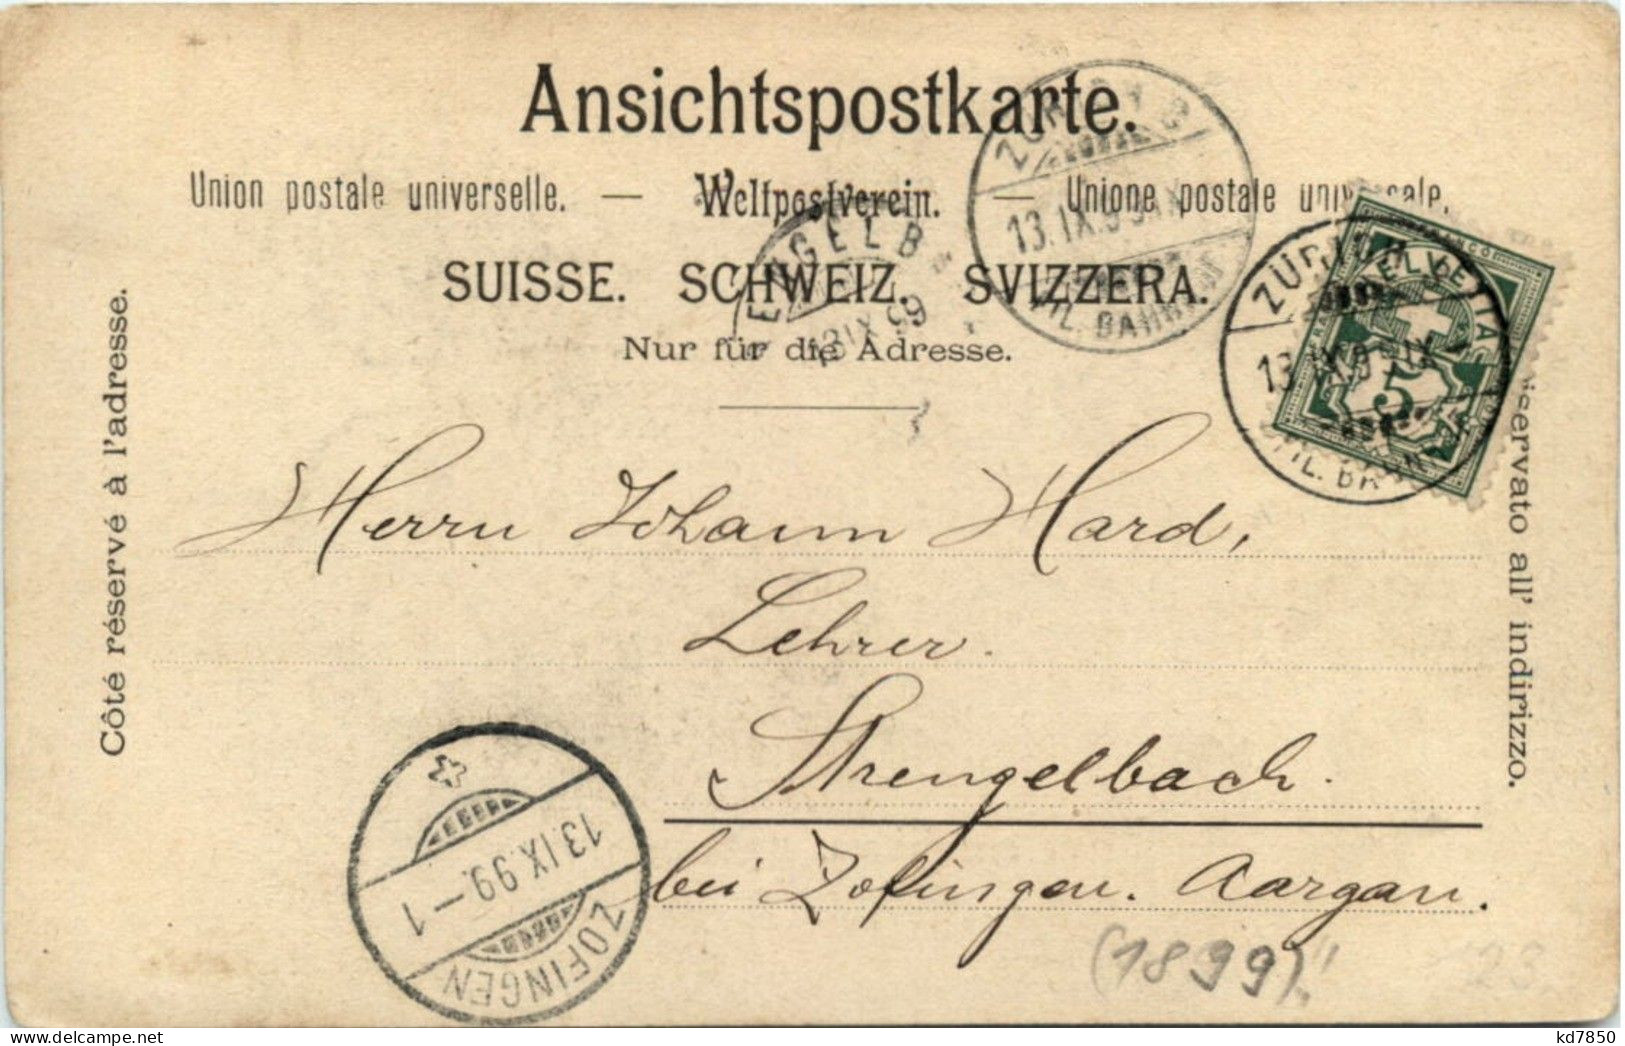 Ansichtspostkarte.
Union postale universelle. — Weltpostverein. — Unione postale universale.
SUISSE. SCHWEIZ. SVIZZERA.
Nur für die Adresse.
Côté réservé à l'adresse.
Riservato all' indirizzo.
ZÜRICH
13. IX. 9
FIL. BAHNHOF
ZÜRICH
13. IX. 9
FIL. BAHN
FRANCO
HELVETIA
5
ENGELB
13 IX 99
Herrn Johann Hard,
Lehrer.
Strengelbach.
bei Zofingen. Aargau.
13. IX. 99. – 1
ZOFINGEN
(1899)
23.
kd7850